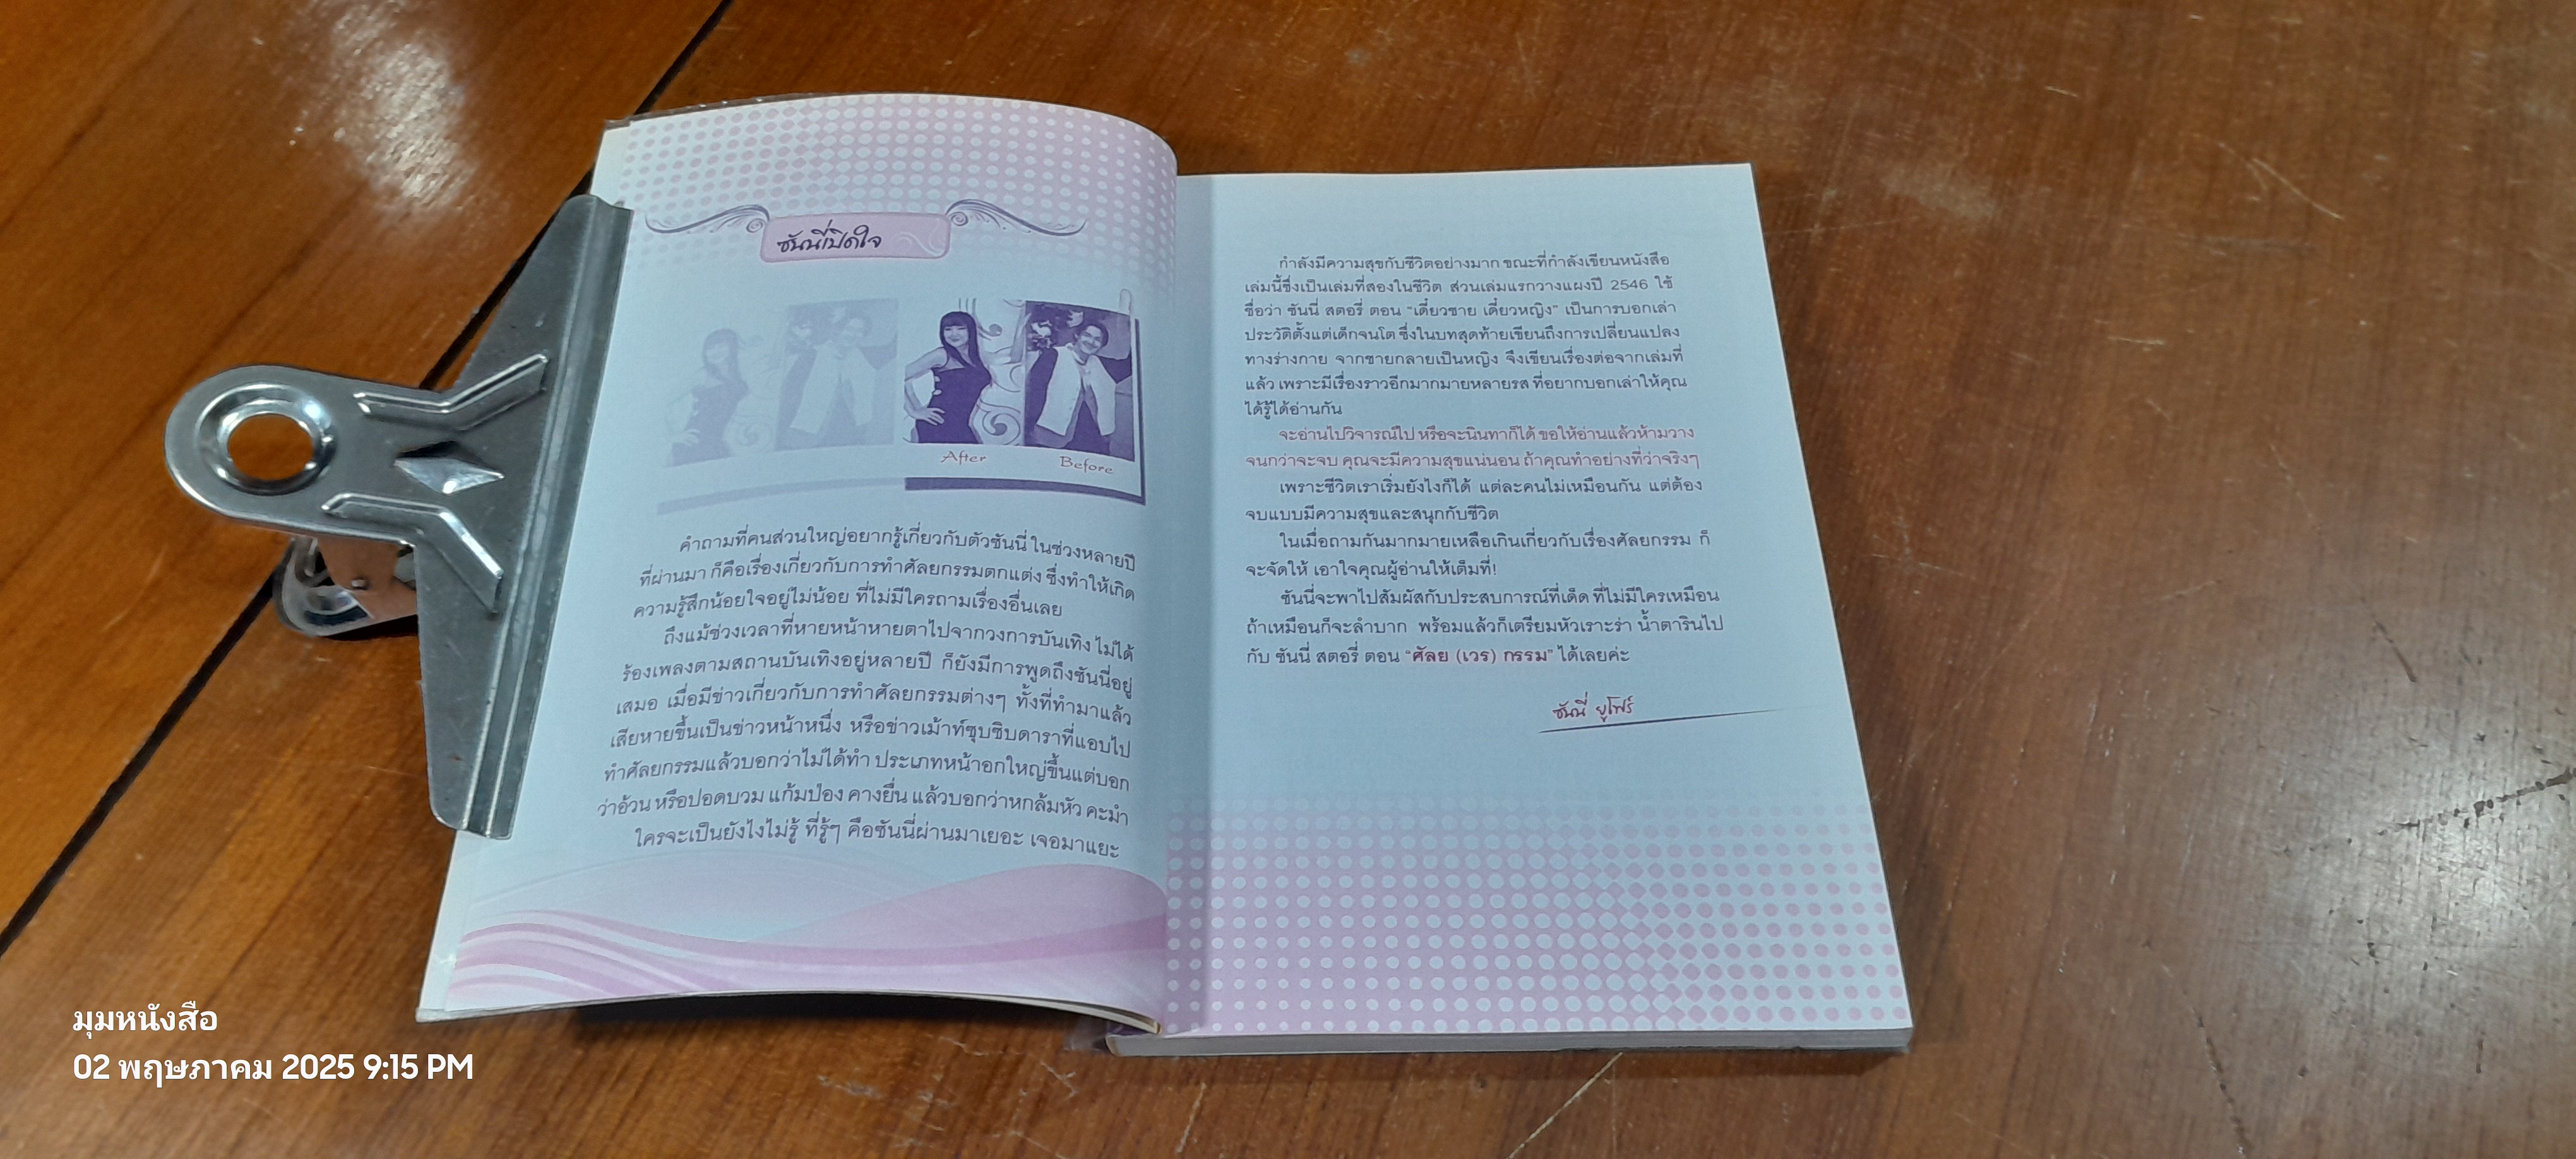 ซันนี่เปิดใจ
After
Before
คำถามที่คนส่วนใหญ่อยากรู้เกี่ยวกับตัวซันนี่ ในช่วงหลายปี
ที่ผ่านมา ก็คือเรื่องเกี่ยวกับการทำศัลยกรรมตกแต่ง ซึ่งทำให้เกิด
ความรู้สึกน้อยใจอยู่ไม่น้อย ที่ไม่มีใครถามเรื่องอื่นเลย
ถึงแม้ช่วงเวลาที่หายหน้าหายตาไปจากวงการบันเทิง ไม่ได้
ร้องเพลงตามสถานบันเทิงอยู่หลายปี ก็ยังมีการพูดถึงซันนี่อยู่
เสมอ เมื่อมีข่าวเกี่ยวกับการทำศัลยกรรมต่างๆ ทั้งที่ทำมาแล้ว
เสียหายขึ้นเป็นข่าวหน้าหนึ่ง หรือข่าวเม้าท์ซุบซิบดาราที่แอบไป
ทำศัลยกรรมแล้วบอกว่าไม่ได้ทำ ประเภทหน้าอกใหญ่ขึ้นแต่บอก
ว่าอ้วน หรือปอดบวม แก้มป่อง คางยื่น แล้วบอกว่าหกล้มหัว คะมำ
ใครจะเป็นยังไงไม่รู้ ที่รู้ๆ คือซันนี่ผ่านมาเยอะ เจอมาแยะ
กำลังมีความสุขกับชีวิตอย่างมาก ขณะที่กำลังเขียนหนังสือ
เล่มนี้ซึ่งเป็นเล่มที่สองในชีวิต ส่วนเล่มแรกวางแผงปี 2546 ใช้
ชื่อว่า ซันนี่ สตอรี่ ตอน “เดี๋ยวชาย เดี๋ยวหญิง” เป็นการบอกเล่า
ประวัติตั้งแต่เด็กจนโต ซึ่งในบทสุดท้ายเขียนถึงการเปลี่ยนแปลง
ทางร่างกาย จากชายกลายเป็นหญิง จึงเขียนเรื่องต่อจากเล่มที่
แล้ว เพราะมีเรื่องราวอีกมากมายหลายรส ที่อยากบอกเล่าให้คุณ
ได้รู้ได้อ่านกัน
จะอ่านไปวิจารณ์ไป หรือจะนินทาก็ได้ ขอให้อ่านแล้วห้ามวาง
จนกว่าจะจบ คุณจะมีความสุขแน่นอน ถ้าคุณทำอย่างที่ว่าจริงๆ
เพราะชีวิตเราเริ่มยังไงก็ได้ แต่ละคนไม่เหมือนกัน แต่ต้อง
จบแบบมีความสุขและสนุกกับชีวิต
ในเมื่อถามกันมากมายเหลือเกินเกี่ยวกับเรื่องศัลยกรรม ก็
จะจัดให้ เอาใจคุณผู้อ่านให้เต็มที่!
ซันนี่จะพาไปสัมผัสกับประสบการณ์ที่เด็ด ที่ไม่มีใครเหมือน
ถ้าเหมือนก็จะลำบาก พร้อมแล้วก็เตรียมหัวเราะร่า น้ำตารินไป
กับ ซันนี่ สตอรี่ ตอน “ศัลย (เวร) กรรม” ได้เลยค่ะ
ซันนี่ ยูโฟร์
มุมหนังสือ
02 พฤษภาคม 2025 9:15 PM